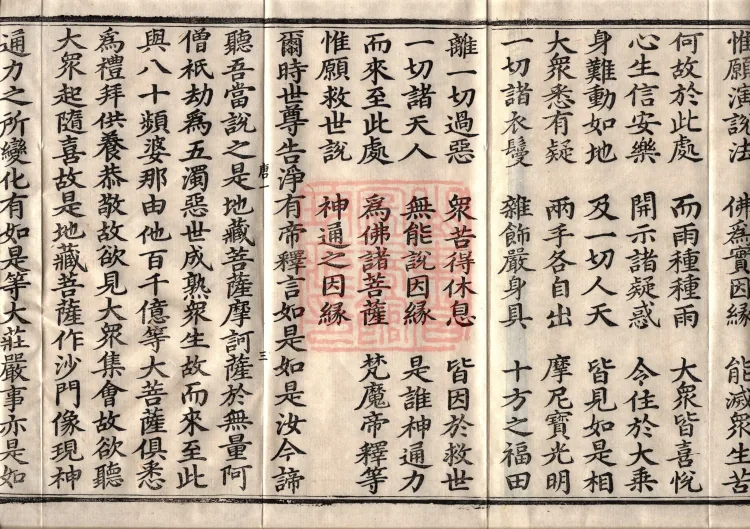 惟願演説法　佛為實因縁　能滅衆生苦
何故於此處　而雨種種雨　大衆皆喜悦
心生信安樂　開示諸疑惑　令住於大乗
身難動如地　及一切人天　皆見如是相
大衆悉有疑　兩手各自出　摩尼寶光明
一切諸衣鬘　雜飾嚴身具　十方之福田
離一切過惡　衆苦得休息　皆因於救世
一切諸天人　無能説因縁　是誰神通力
而來至此處　爲佛諸菩薩　梵魔帝釋等
惟願救世説　神通之因縁
爾時世尊告淨有帝釋言如是如是汝今諦
唐一　三
聽吾當説之是地藏菩薩摩訶薩於無量阿
僧祇劫爲五濁惡世成熟衆生故而來至此
與八十頻婆那由他百千億等大菩薩俱悉
爲禮拜供養恭敬故欲見大衆集會故欲聽
大衆起隨喜故是地藏菩薩作沙門像現神
通力之所變化有如是等大莊嚴事亦是如